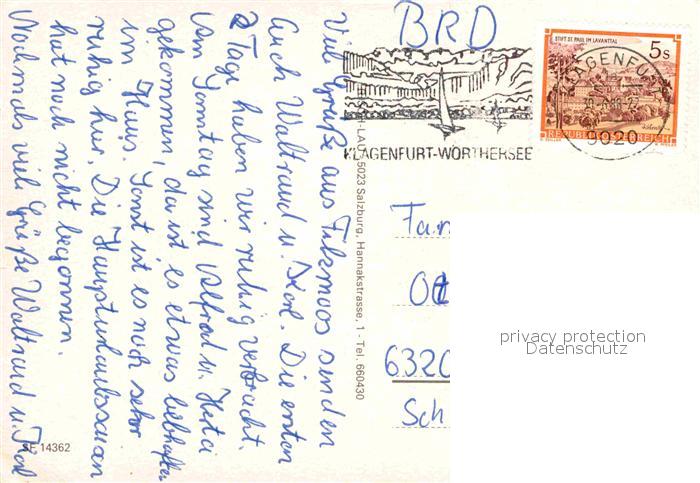 Viele Grüße aus Filzmoos senden
Auch Waltraud u. Karl. Die ersten
2 Tage haben wir ruhig verbracht.
Am Sonntag sind Alfred u. Herta
gekommen, da ist es etwas lebhafter
im Haus. Sonst ist es noch sehr
ruhig hier. Die Haupturlaubssaison
hat noch nicht begonnen.
Nochmals viele Grüße Waltraud u. Karl
5023 Salzburg, Hannakstrasse, 1 - Tel. 660430
SE 14362
BRD
KLAGENFURT-WÖRTHERSEE
STIFT ST. PAUL IM LAVANTTAL
5s
REPUBLIK ÖSTERREICH
KLAGENFURT
9020
Fam
6320
Sch
privacy protection
Datenschutz